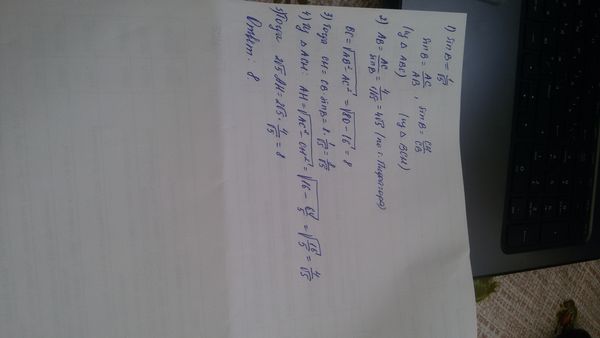 1) sin B = 1/√5
sin B = AC/AB, sin B = CH/CB
(из △ ABC) (из △ BCH)
2) AB = AC/sin B = 4/(1/√5) = 4√5 (по т. Пифагора)
BC = √(AB² - AC²) = √(80 - 16) = 8
3) Тогда CH = CB · sin B = 8 · 1/√5 = 8/√5
4) Из △ ACH: AH = √(AC² - CH²) = √(16 - 64/5) = √(16/5) = 4/√5
5) Тогда 2√5 AH = 2√5 · 4/√5 = 8
Ответ: 8